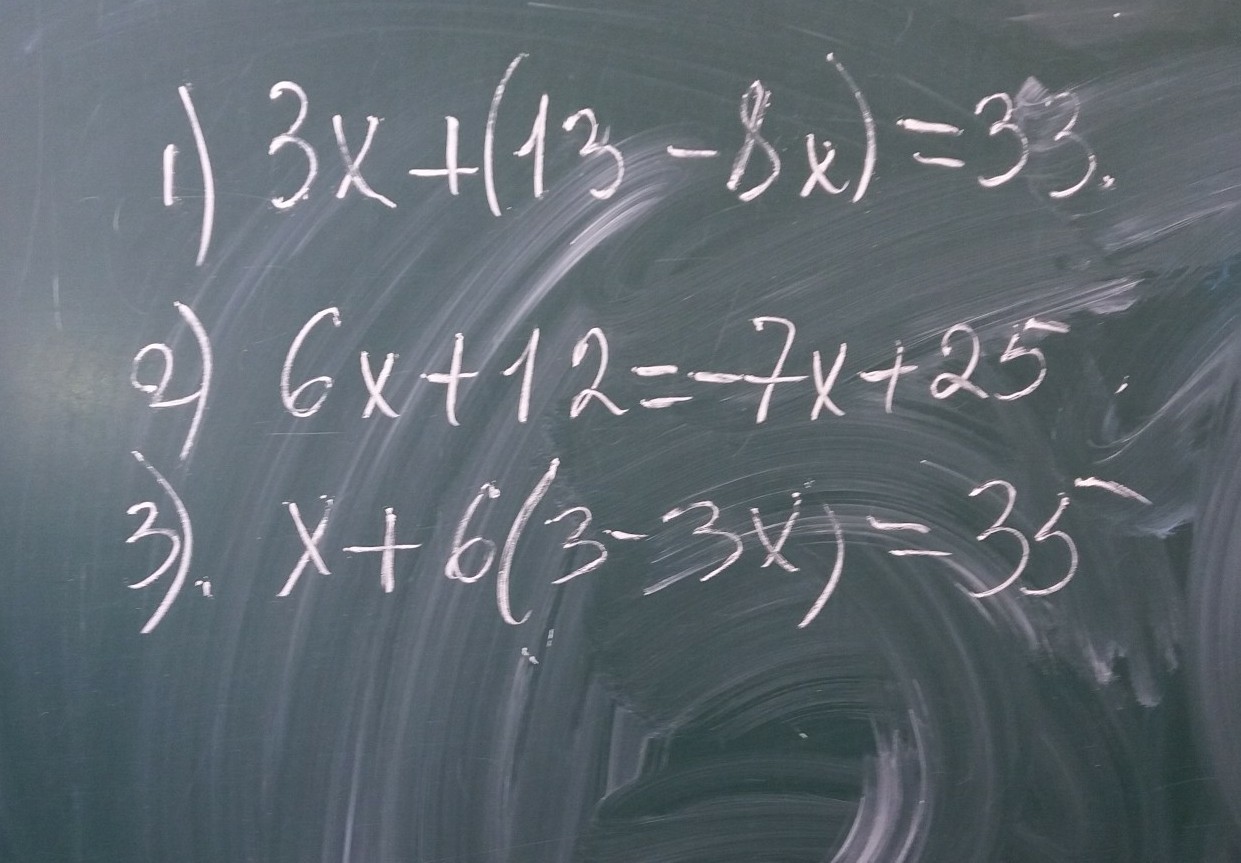 1) 3x+(13-8x)=33.
2) 6x+12=-7x+25.
3). x+6(3-3x)=35